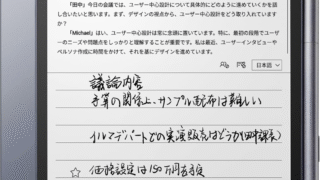 「田中」今日の会議では、ユーザー中心設計について具体的にどのように進めていくかを話
し合いたいと思います。まず、デザインの視点から、ユーザー中心設計をどう取り入れていますか？
「Michael」はい、ユーザー中心設計は常に念頭に置いています。特に、最初の段階でユーザ
ーのニーズや問題点をしっかりと理解することが重要です。私は最近、ユーザーインタビューや
ペルソナ作成に時間をかけて、それを基にデザインを進めています。
日本語
議論内容
予算の関係上、サンプル配布は難しい
デパートでの実演販売はどうか(田中課長)
☆ 価格設定は150万円を予定